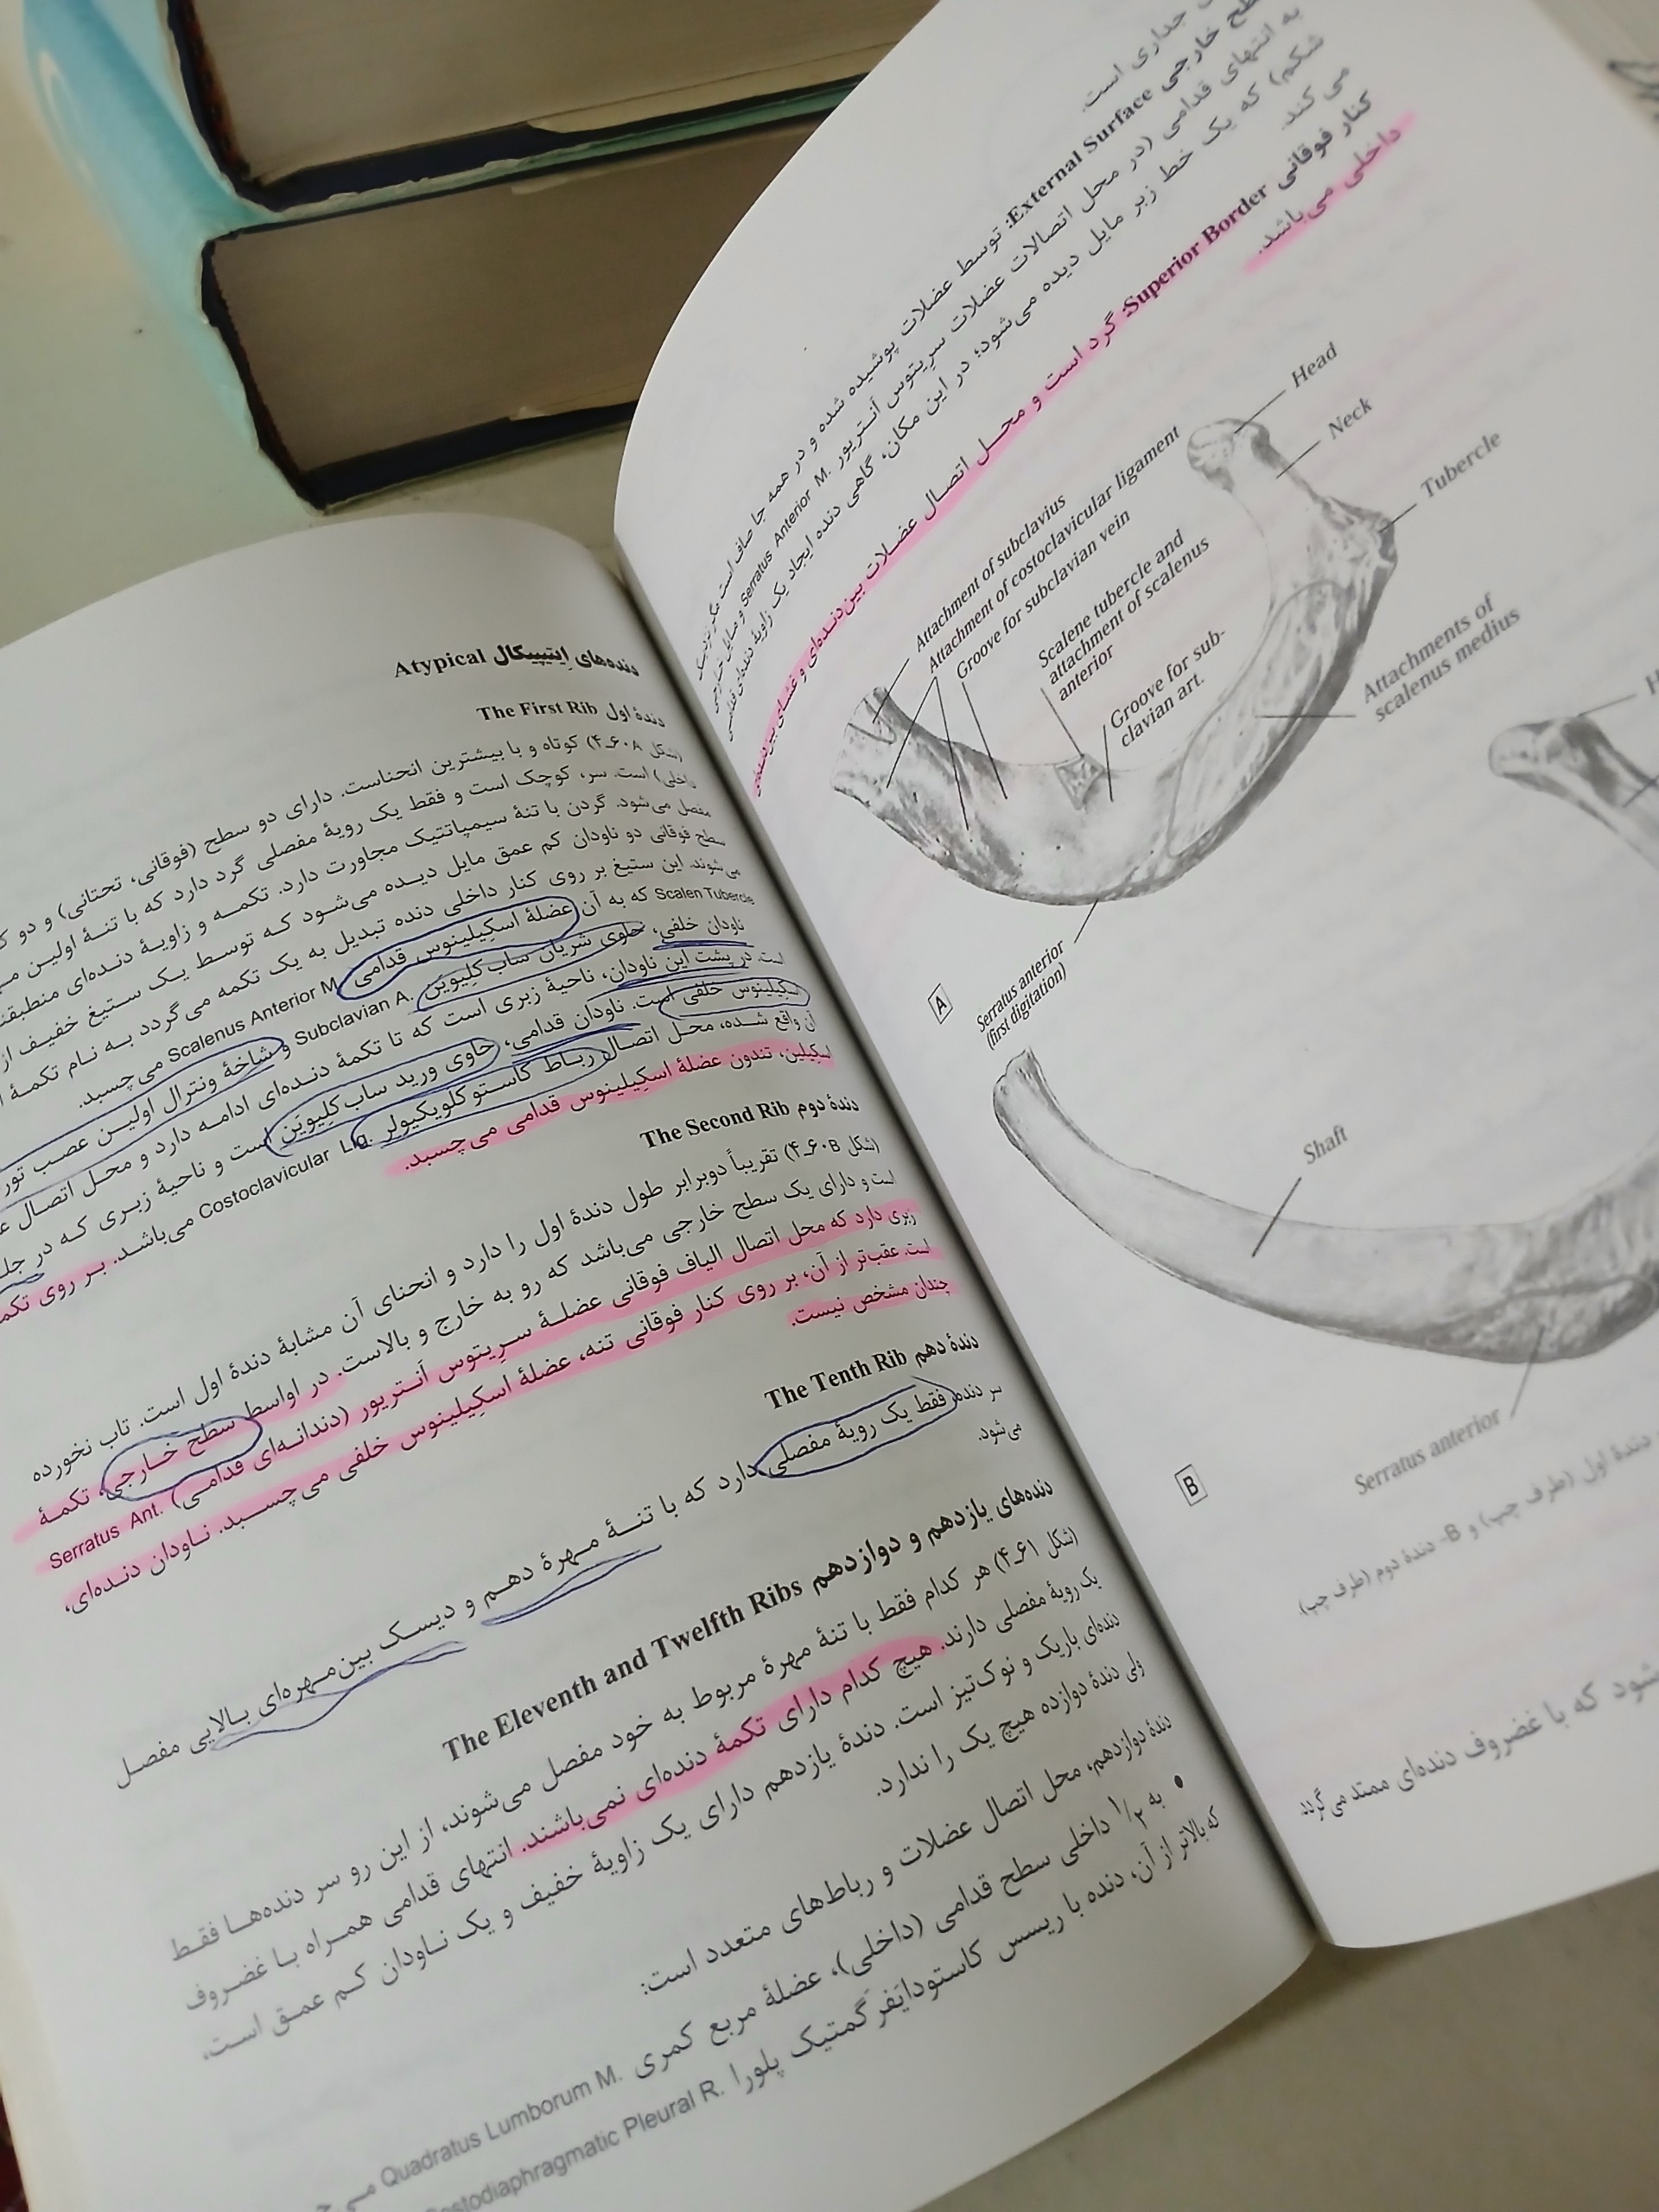 دنده‌های اِیتیپیکال Atypical
دندهٔ اول The First Rib
(شکل ۶۰A-۴) کوتاه و با بیشترین انحناست. دارای دو سطح (فوقانی، تحتانی) و دو
داخلی) است. سر، کوچک است و فقط یک رویهٔ مفصلی گرد دارد که با تنهٔ اولین
مفصل می‌شود. گردن با تنهٔ سیمپاتتیک مجاورت دارد. تکمه و زاویهٔ دنده‌ای منطبقند
سطح فوقانی دو ناودان کم عمق مایل دیده می‌شود که توسط یک ستیغ خفیف از
می‌شوند. این ستیغ بر روی کنار داخلی دنده تبدیل به یک تکمه می‌گردد به نام تکمهٔ
Scalen Tubercle که به آن عضلهٔ اسکِیلینوس قدامی Scalenus Anterior M. می‌چسبد.
ناودان خلفی، حاوی شریان ساب‌کِلِیویَن Subclavian A. و شاخهٔ ونترال اولین عصب
است. در پشت این ناودان، ناحیهٔ زبری است که تا تکمهٔ دنده‌ای ادامه دارد و محل اتصال
اسکِیلینوس خلفی است. ناودان قدامی، حاوی ورید ساب‌کِلِیویَن است و ناحیهٔ زبری که در
آن واقع شده، محل اتصال رباط کاستوکلویکیولر Costoclavicular Lig. می‌باشد. بر روی
اسکِیلین، تندون عضلهٔ اسکِیلینوس قدامی می‌چسبد.
دندهٔ دوم The Second Rib
(شکل ۶۰B-۴) تقریباً دوبرابر طول دندهٔ اول را دارد و انحنای آن مشابهٔ دندهٔ اول است. تاب نخورده
است و دارای یک سطح خارجی می‌باشد که رو به خارج و بالاست. در اواسط سطح خارجی، تکمهٔ
زبری دارد که محل اتصال الیاف فوقانی عضلهٔ سرِیتوس آنتریور (دندانه‌ای قدامی) Serratus Ant.
است. عقب‌تر از آن، بر روی کنار فوقانی تنه، عضلهٔ اسکِیلینوس خلفی می‌چسبد. ناودان دنده‌ای،
چندان مشخص نیست.
دندهٔ دهم The Tenth Rib
سر دنده فقط یک رویهٔ مفصلی دارد که با تنهٔ مهرهٔ دهم و دیسک بین‌مهره‌ای بالایی مفصل
می‌شود.
دنده‌های یازدهم و دوازدهم The Eleventh and Twelfth Ribs
(شکل ۶۱-۴) هر کدام فقط با تنهٔ مهرهٔ مربوط به خود مفصل می‌شوند، از این رو سر دنده‌ها فقط
یک رویهٔ مفصلی دارند. هیچ کدام دارای تکمهٔ دنده‌ای نمی‌باشند. انتهای قدامی همراه با غضروف
دنده‌ای باریک و نوک‌تیز است. دندهٔ یازدهم دارای یک زاویهٔ خفیف و یک ناودان کم عمق است،
ولی دندهٔ دوازده هیچ یک را ندارد.
دندهٔ دوازدهم، محل اتصال عضلات و رباط‌های متعدد است:
• به ۱/۲ داخلی سطح قدامی (داخلی)، عضلهٔ مربع کمری Quadratus Lumborum M.
که بالاتر از آن، دنده با ریسس کاستودایَفرَگمتیک پلورا Costodiaphragmatic Pleural R.
جداری است.
سطح خارجی External Surface: توسط عضلات پوشیده شده و در همه جا صاف است مگر نزدیک
به انتهای قدامی (در محل اتصالات عضلات سرِیتوس آنتریور Serratus Anterior M. و مایل خارجی
شکم) که یک خط زبر مایل دیده می‌شود؛ در این مکان، گاهی دنده ایجاد یک زاویهٔ دنده‌ای قدامی
می کند.
کنار فوقانی Superior Border: گرد است و محل اتصال عضلات بین‌دنده‌ای و غشای بین‌دنده‌ای
داخلی می‌باشد.
Head
Neck
Tubercle
Attachment of subclavius
Attachment of costoclavicular ligament
Groove for subclavian vein
Scalene tubercle and
attachment of scalenus
anterior
Groove for sub-
clavian art.
Attachments of
scalenus medius
Serratus anterior
(first digitation)
A
Shaft
Serratus anterior
B
دندهٔ اول (طرف چپ) و B- دندهٔ دوم (طرف چپ)
شود که با غضروف دنده‌ای ممتد می‌گردد